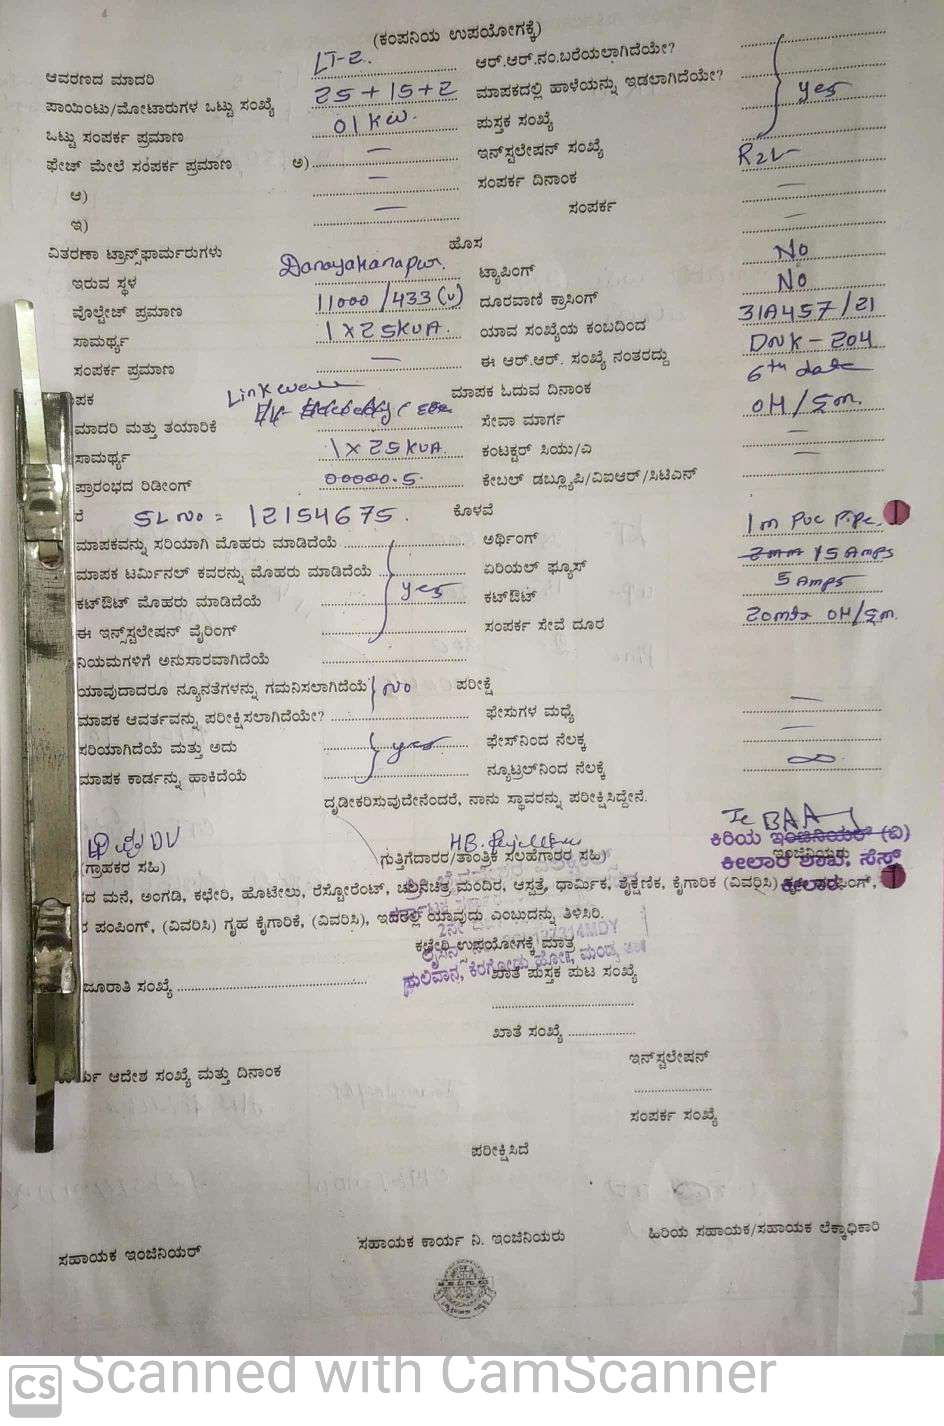 (ಕಂಪನಿಯ ಉಪಯೋಗಕ್ಕೆ)
ಆವರಣದ ಮಾದರಿ LT-2. ಆರ್.ಆರ್.ನಂ.ಬರೆಯಲಾಗಿದೆಯೇ?
ಪಾಯಿಂಟು/ಮೋಟಾರುಗಳ ಒಟ್ಟು ಸಂಖ್ಯೆ 25+15+2 ಮಾಪಕದಲ್ಲಿ ಹಾಳೆಯನ್ನು ಇಡಲಾಗಿದೆಯೇ? yes
ಒಟ್ಟು ಸಂಪರ್ಕ ಪ್ರಮಾಣ 01 kw. ಪುಸ್ತಕ ಸಂಖ್ಯೆ
ಫೇಜ್ ಮೇಲೆ ಸಂಪರ್ಕ ಪ್ರಮಾಣ ಅ) — ಇನ್‌ಸ್ಟಲೇಷನ್ ಸಂಖ್ಯೆ
ಆ) — ಸಂಪರ್ಕ ದಿನಾಂಕ —
ಇ) — ಸಂಪರ್ಕ —
ವಿತರಣಾ ಟ್ರಾನ್ಸ್‌ಫಾರ್ಮರುಗಳು ಹೊಸ No
ಇರುವ ಸ್ಥಳ Danayakanapur. ಟ್ಯಾಪಿಂಗ್ No
ವೊಲ್ಟೇಜ್ ಪ್ರಮಾಣ 11000/433(v) ದೂರವಾಣಿ ಕ್ರಾಸಿಂಗ್ 31A457/21
ಸಾಮರ್ಥ್ಯ 1x25KVA. ಯಾವ ಸಂಖ್ಯೆಯ ಕಂಬದಿಂದ DNK-204
ಸಂಪರ್ಕ ಪ್ರಮಾಣ — ಈ ಆರ್.ಆರ್. ಸಂಖ್ಯೆ ನಂತರದ್ದು 6th date
ಪಕ Linkwell ಮಾಪಕ ಓದುವ ದಿನಾಂಕ
ಮಾದರಿ ಮತ್ತು ತಯಾರಿಕೆ ಸೇವಾ ಮಾರ್ಗ OH/
ಸಾಮರ್ಥ್ಯ 1x25KVA. ಕಂಟಕ್ಟರ್ ಸಿಯು/ಎ —
ಪ್ರಾರಂಭದ ರಿಡೀಂಗ್ 00000.5. ಕೇಬಲ್ ಡಬ್ಲ್ಯೂಪಿ/ವಿಐಆರ್/ಸಿಟಿಎನ್ —
ರೆ SL NO = 12154675. ಕೊಳವೆ 1m PVC Pipe.
ಮಾಪಕವನ್ನು ಸರಿಯಾಗಿ ಮೊಹರು ಮಾಡಿದೆಯೆ ಅರ್ಥಿಂಗ್ 15 Amps
ಮಾಪಕ ಟರ್ಮಿನಲ್ ಕವರನ್ನು ಮೊಹರು ಮಾಡಿದೆಯೆ ಏರಿಯಲ್ ಫ್ಯೂಸ್ 5 Amps
ಕಟ್‌ಔಟ್ ಮೊಹರು ಮಾಡಿದೆಯೆ yes ಕಟ್‌ಔಟ್
ಈ ಇನ್‌ಸ್ಟಲೇಷನ್ ವೈರಿಂಗ್ ಸಂಪರ್ಕ ಸೇವೆ ದೂರ 20mts OH/
ನಿಯಮಗಳಿಗೆ ಅನುಸಾರವಾಗಿದೆಯೆ
ಯಾವುದಾದರೂ ನ್ಯೂನತೆಗಳನ್ನು ಗಮನಿಸಲಾಗಿದೆಯೆ No ಪರೀಕ್ಷೆ
ಮಾಪಕ ಆವರ್ತವನ್ನು ಪರೀಕ್ಷಿಸಲಾಗಿದೆಯೇ? ಫೇಸುಗಳ ಮಧ್ಯೆ —
ಸರಿಯಾಗಿದೆಯೆ ಮತ್ತು ಅದು yes ಫೇಸ್‌ನಿಂದ ನೆಲಕ್ಕ —
ಮಾಪಕ ಕಾರ್ಡನ್ನು ಹಾಕಿದೆಯೆ ನ್ಯೂಟ್ರಲ್‌ನಿಂದ ನೆಲಕ್ಕೆ ∞
ದೃಡೀಕರಿಸುವುದೇನೆಂದರೆ, ನಾನು ಸ್ಥಾವರನ್ನು ಪರೀಕ್ಷಿಸಿದ್ದೇನೆ.
(ಗ್ರಾಹಕರ ಸಹಿ) ಗುತ್ತಿಗೆದಾರರ/ತಾಂತ್ರಿಕ ಸಲಹೆಗಾರರ ಸಹಿ) ಇಂಜಿನಿಯರು
ಕಿರಿಯ ಇಂಜಿನಿಯರ್ (ವಿ)
ಕೀಲಾರ ಶಾಖೆ, ಸೆಸ್ಕ್
ಕೀಲಾರ.
ದ ಮನೆ, ಅಂಗಡಿ, ಕಛೇರಿ, ಹೊಟೇಲು, ರೆಸ್ಟೋರೆಂಟ್, ಚಲನಚಿತ್ರ ಮಂದಿರ, ಆಸ್ಪತ್ರೆ, ಧಾರ್ಮಿಕ, ಶೈಕ್ಷಣಿಕ, ಕೈಗಾರಿಕ (ವಿವರಿಸಿ)
ರ ಪಂಪಿಂಗ್, (ವಿವರಿಸಿ) ಗೃಹ ಕೈಗಾರಿಕೆ, (ವಿವರಿಸಿ), ಇದರಲ್ಲಿ ಯಾವುದು ಎಂಬುದನ್ನು ತಿಳಿಸಿರಿ.
ಕಛೇರಿ ಉಪಯೋಗಕ್ಕೆ ಮಾತ್ರ
ದೂರಾತಿ ಸಂಖ್ಯೆ ಖಾತೆ ಪುಸ್ತಕ ಪುಟ ಸಂಖ್ಯೆ
ಖಾತೆ ಸಂಖ್ಯೆ
ಇನ್‌ಸ್ಟಲೇಷನ್
ಆದೇಶ ಸಂಖ್ಯೆ ಮತ್ತು ದಿನಾಂಕ
ಸಂಪರ್ಕ ಸಂಖ್ಯೆ
ಪರೀಕ್ಷಿಸಿದೆ
ಸಹಾಯಕ ಇಂಜಿನಿಯರ್ ಸಹಾಯಕ ಕಾರ್ಯ ನಿ. ಇಂಜಿನಿಯರು ಹಿರಿಯ ಸಹಾಯಕ/ಸಹಾಯಕ ಲೆಕ್ಕಾಧಿಕಾರಿ
CS Scanned with CamScanner